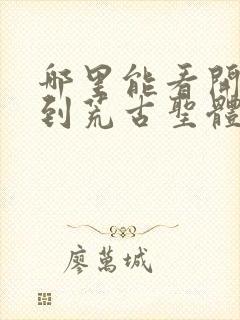 哪里能看開
到荒古聖體
廖萬城